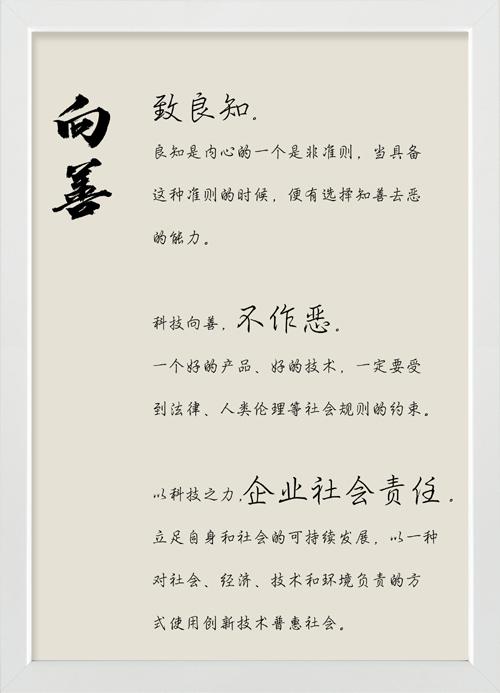 向善
致良知。
良知是内心的一个是非准则，当具备
这种准则的时候，便有选择知善去恶
的能力。
科技向善，不作恶。
一个好的产品、好的技术，一定要受
到法律、人类伦理等社会规则的约束。
以科技之力，企业社会责任。
立足自身和社会的可持续发展，以一种
对社会、经济、技术和环境负责的方
式使用创新技术普惠社会。